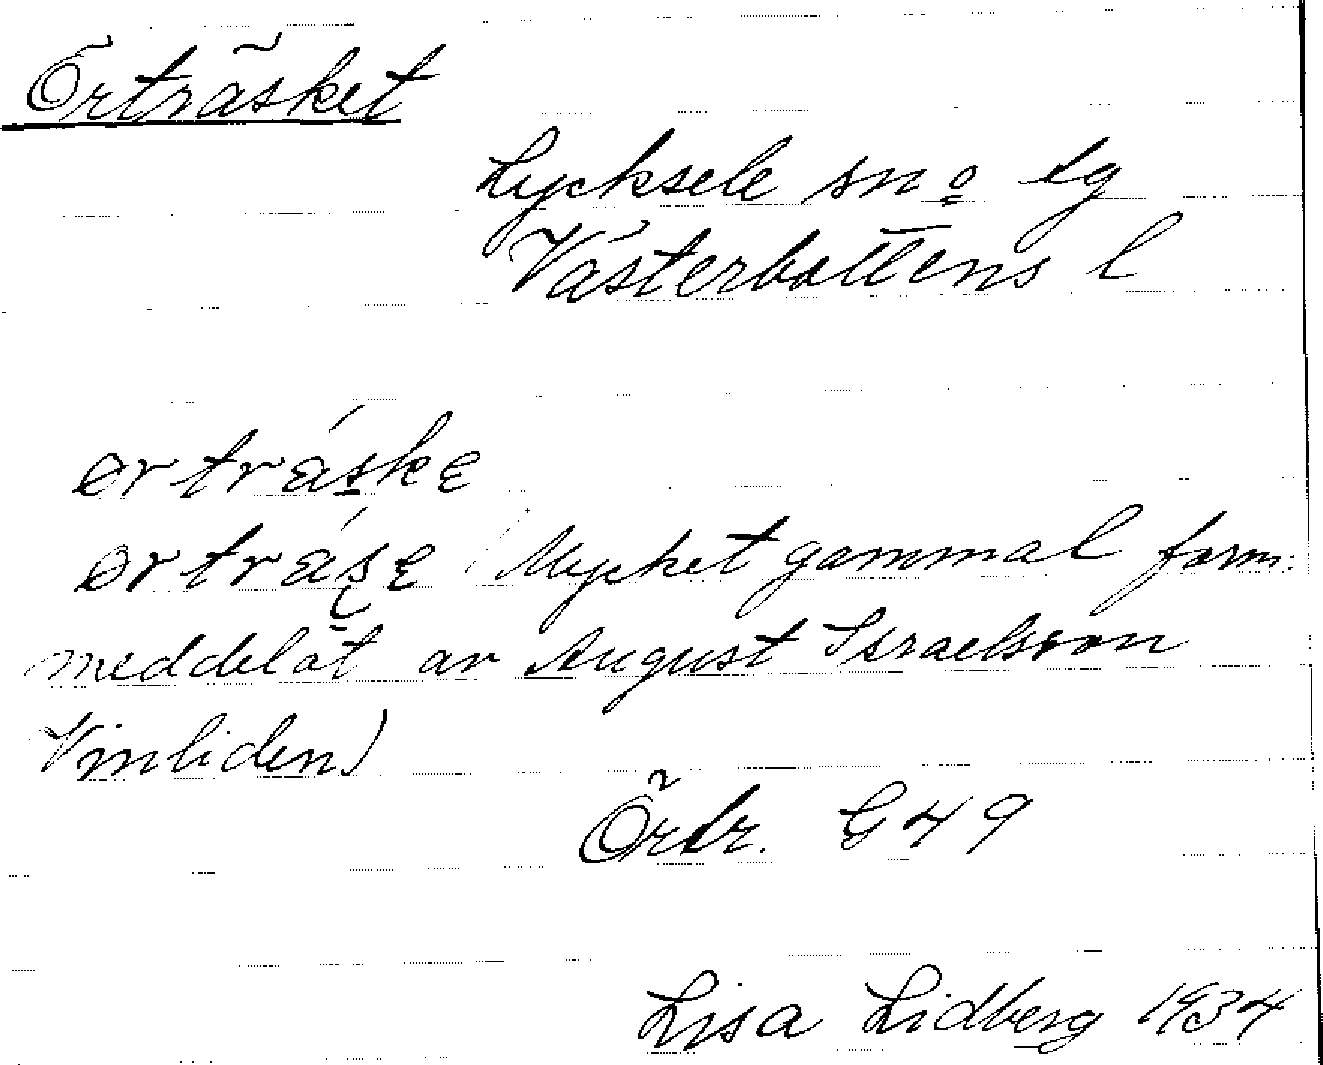 Örträsket
Lycksele sn o lg
Västerbottens l
örträskɛ
örträʂɛ (Mycket gammal form
meddelat av August Israelsson
Vinliden)
Örtr. G 49
Lisa Lidberg 1934